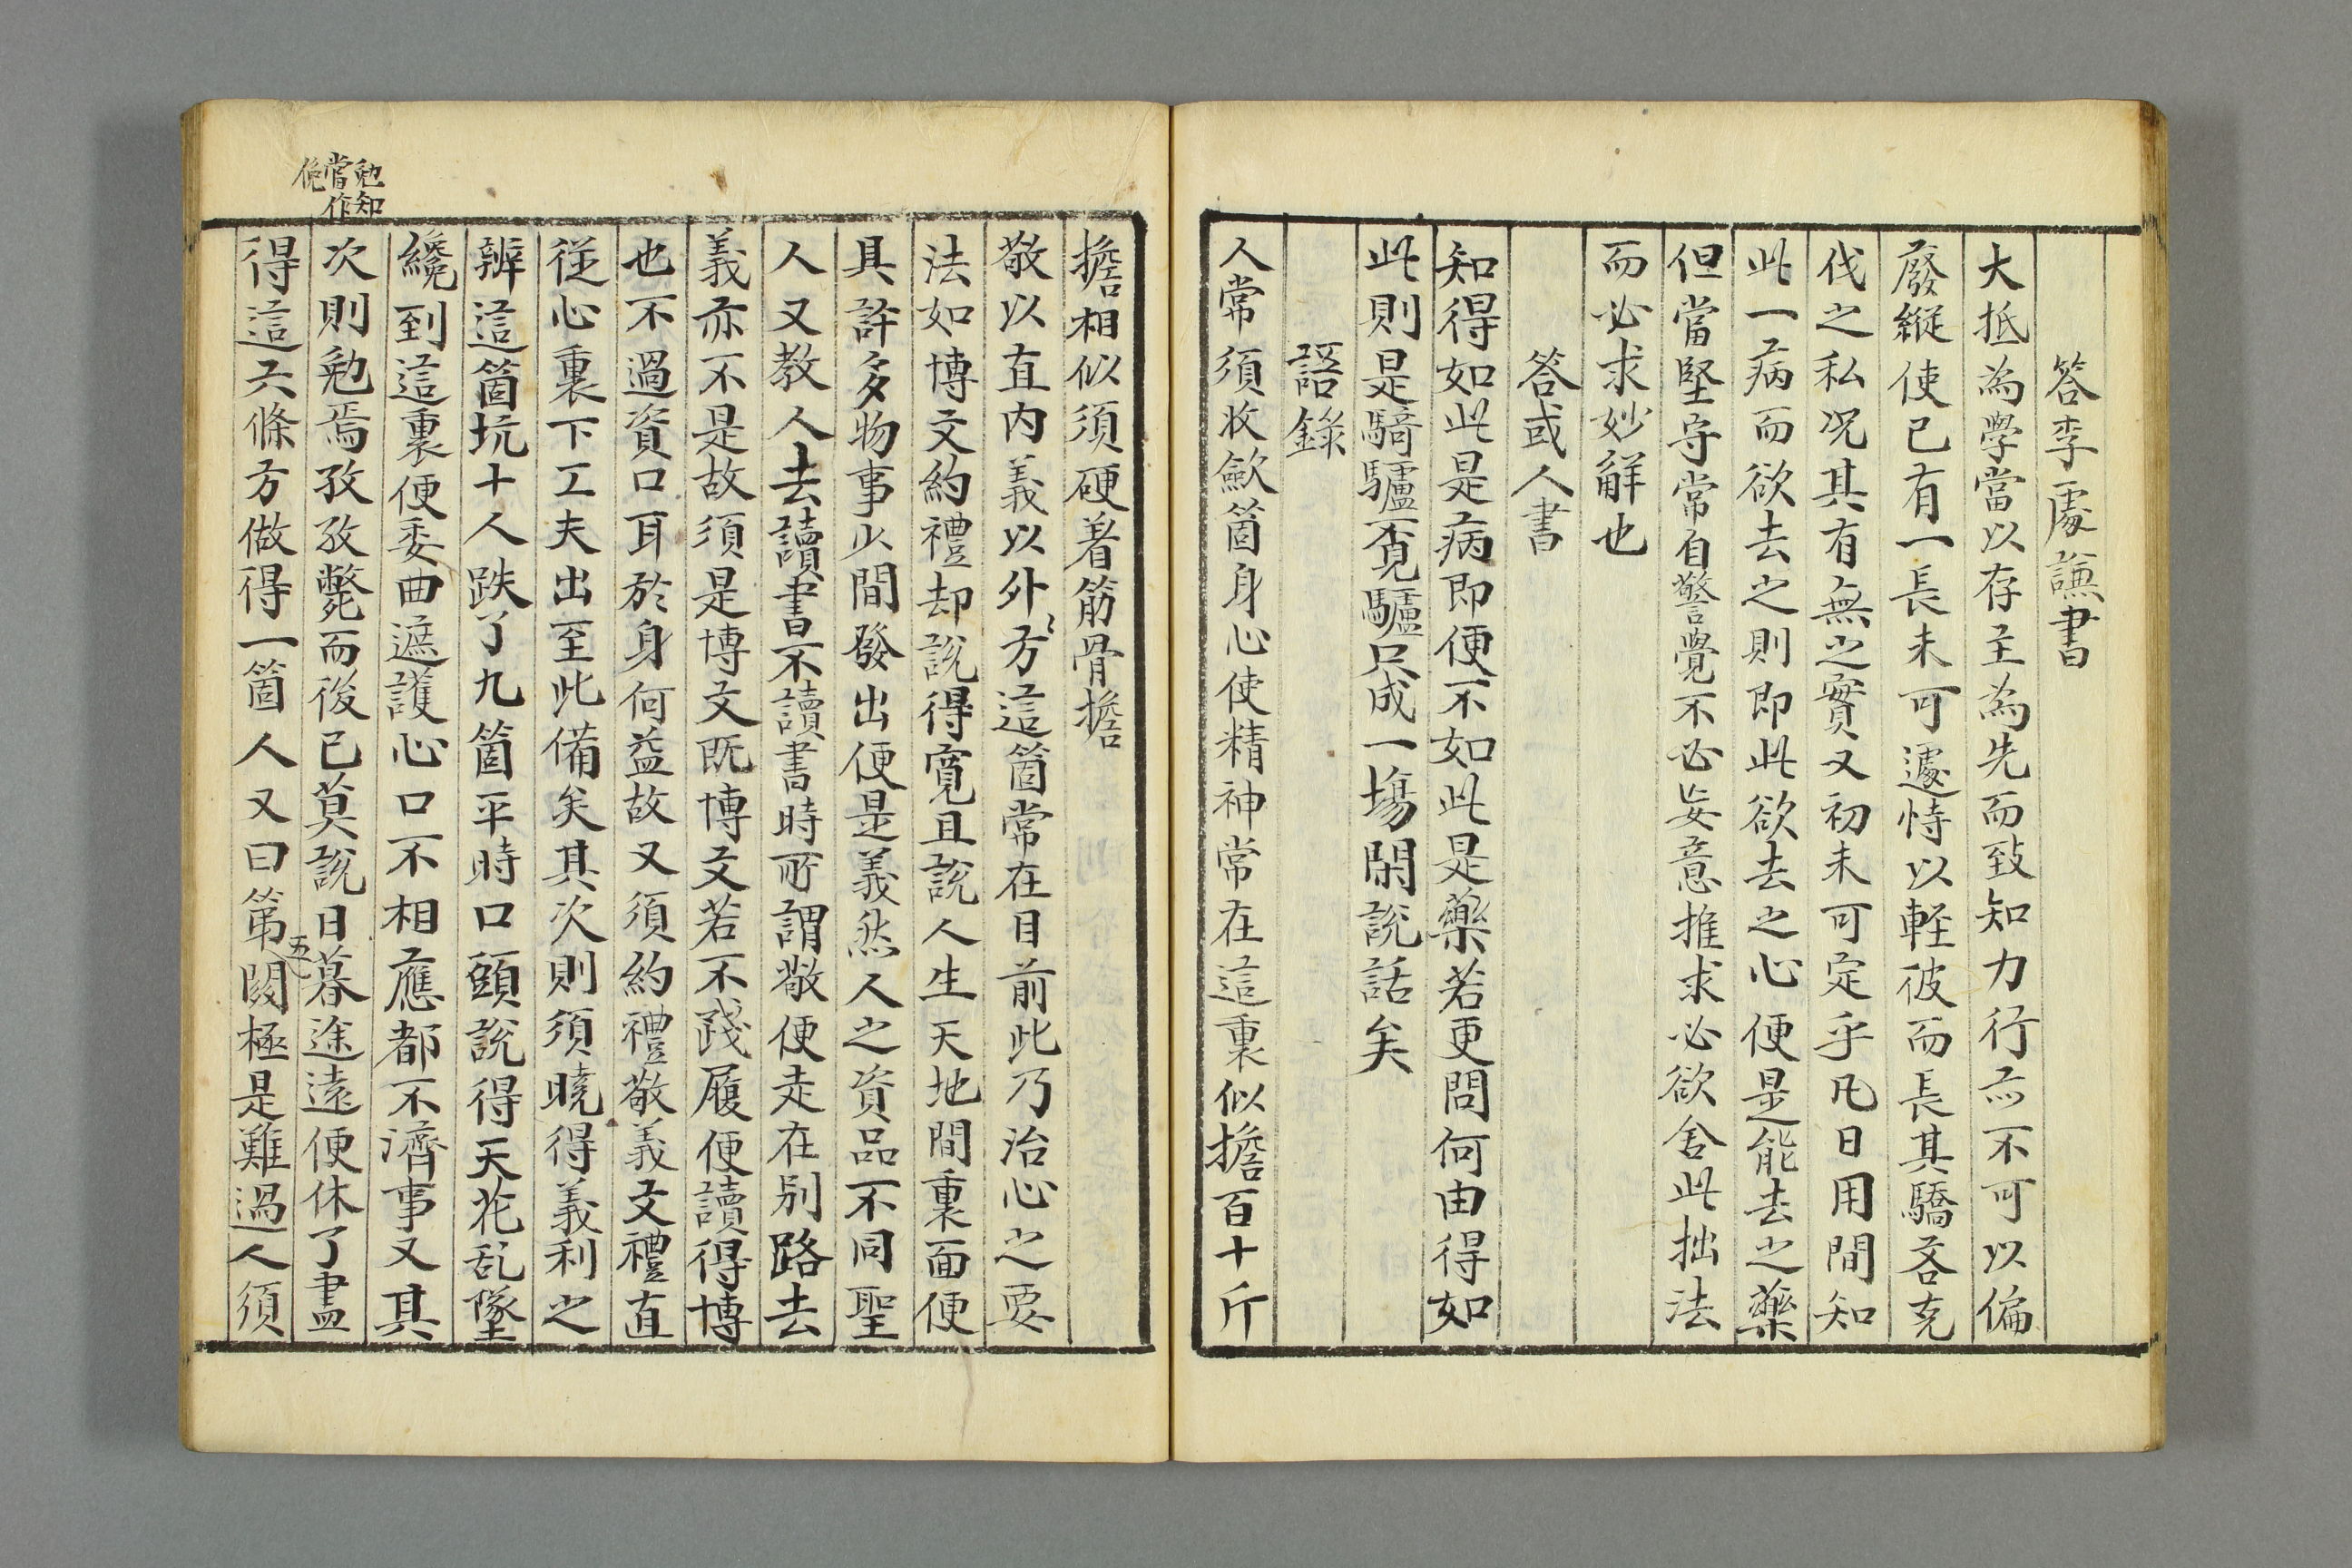 答李處謙書
大抵為學當以存主為先而致知力行亦不可以偏
廢縱使已有一長未可遽恃以軽彼而長其驕吝克
伐之私况其有無之實又初未可定乎凡日用間知
此一病而欲去之則即此欲去之心便是能去之藥
但當堅守常自警覺不必妄意推求必欲舍此拙法
而必求妙觧也
答或人書
知得如此是病即便不如此是藥若更問何由得如
此則是騎驢覔驢只成一塲閑說話矣
語錄
人常須收斂箇身心使精神常在這裏似擔百十斤
擔相似須硬着筋骨擔
敬以直内義以外〻方這箇常在目前此乃治心之要
法如博文約禮却說得寬且說人生天地間裏面便
具許多物事少間發出便是義然人之資品不同聖
人又教人去讀書不讀書時所謂敬便走在别路去
義亦不是故須是博文既博文若不踐履便讀得博
也不過資口耳於身何益故又須約禮敬義文禮直
従心裏下工夫出至此備矣其次則須曉得義利之
辨這箇坑十人跌了九箇平時口頭說得天花乱墜
纔到這裏便委曲遮護心口不相應都不濟事又其
次則勉焉孜孜斃而後已莫說日暮途遠便休了盡
得這六條方做得一箇人又曰第五関極是難過人須
勉知
當作
俛